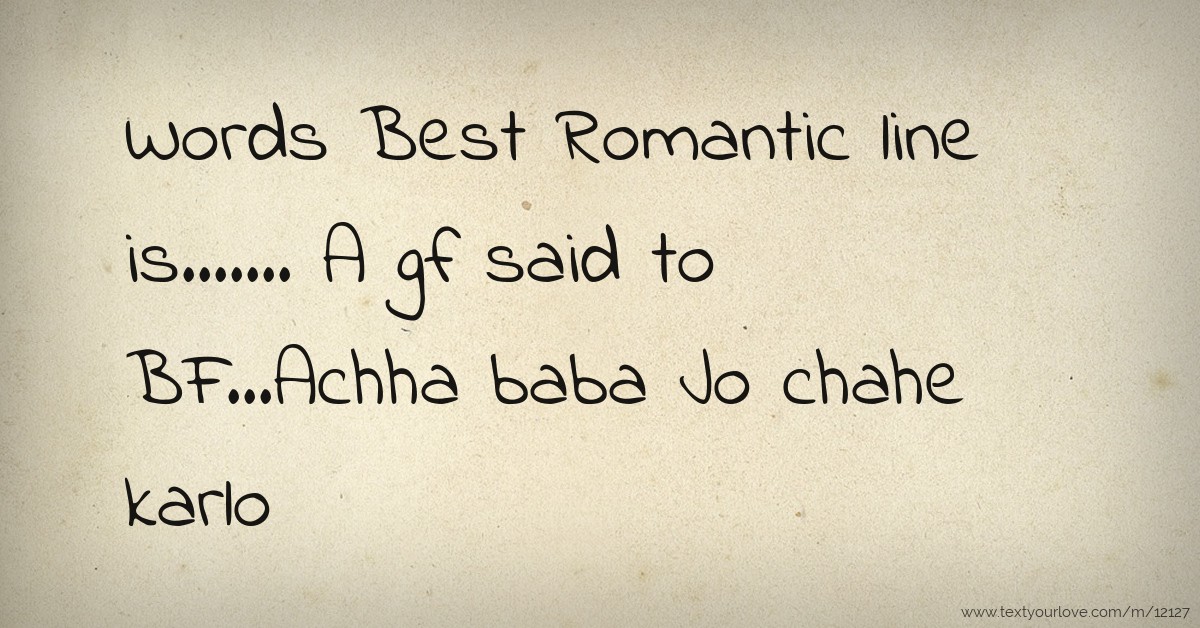 Words Best Romantic line
is....... A gf said to
BF...Achha baba Jo chahe
karlo
www.textyourlove.com/m/12127